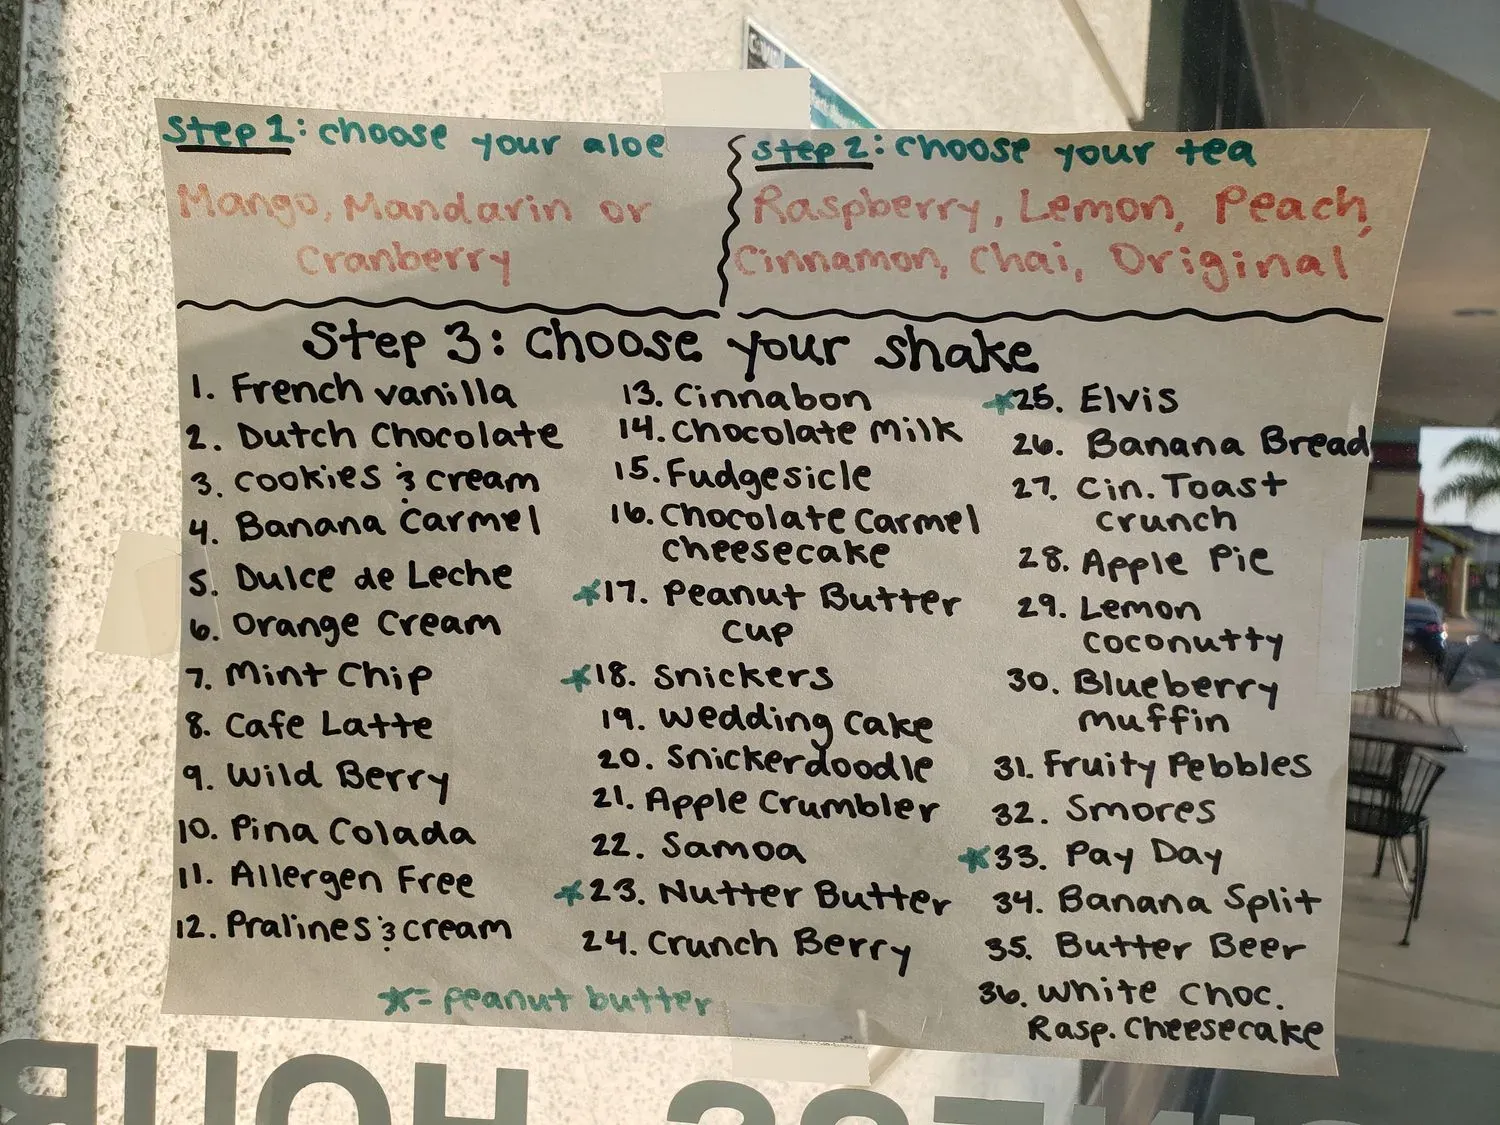 Step 1: choose your aloe
Mango, Mandarin or
Cranberry
Step 2: choose your tea
Raspberry, Lemon, Peach,
Cinnamon, Chai, Original
Step 3: choose your shake
1. French vanilla
2. Dutch Chocolate
3. Cookies & cream
4. Banana Carmel
5. Dulce de Leche
6. Orange Cream
7. Mint Chip
8. Cafe Latte
9. Wild Berry
10. Pina Colada
11. Allergen Free
12. Pralines & cream
13. Cinnabon
14. Chocolate Milk
15. Fudgesicle
16. Chocolate Carmel
cheesecake
*17. Peanut Butter
Cup
*18. Snickers
19. Wedding Cake
20. Snickerdoodle
21. Apple Crumbler
22. Samoa
*23. Nutter Butter
24. Crunch Berry
*25. Elvis
26. Banana Bread
27. Cin. Toast
Crunch
28. Apple Pie
29. Lemon
coconutty
30. Blueberry
muffin
31. Fruity Pebbles
32. Smores
*33. Pay Day
34. Banana Split
35. Butter Beer
36. White Choc.
Rasp. Cheesecake
*= peanut butter